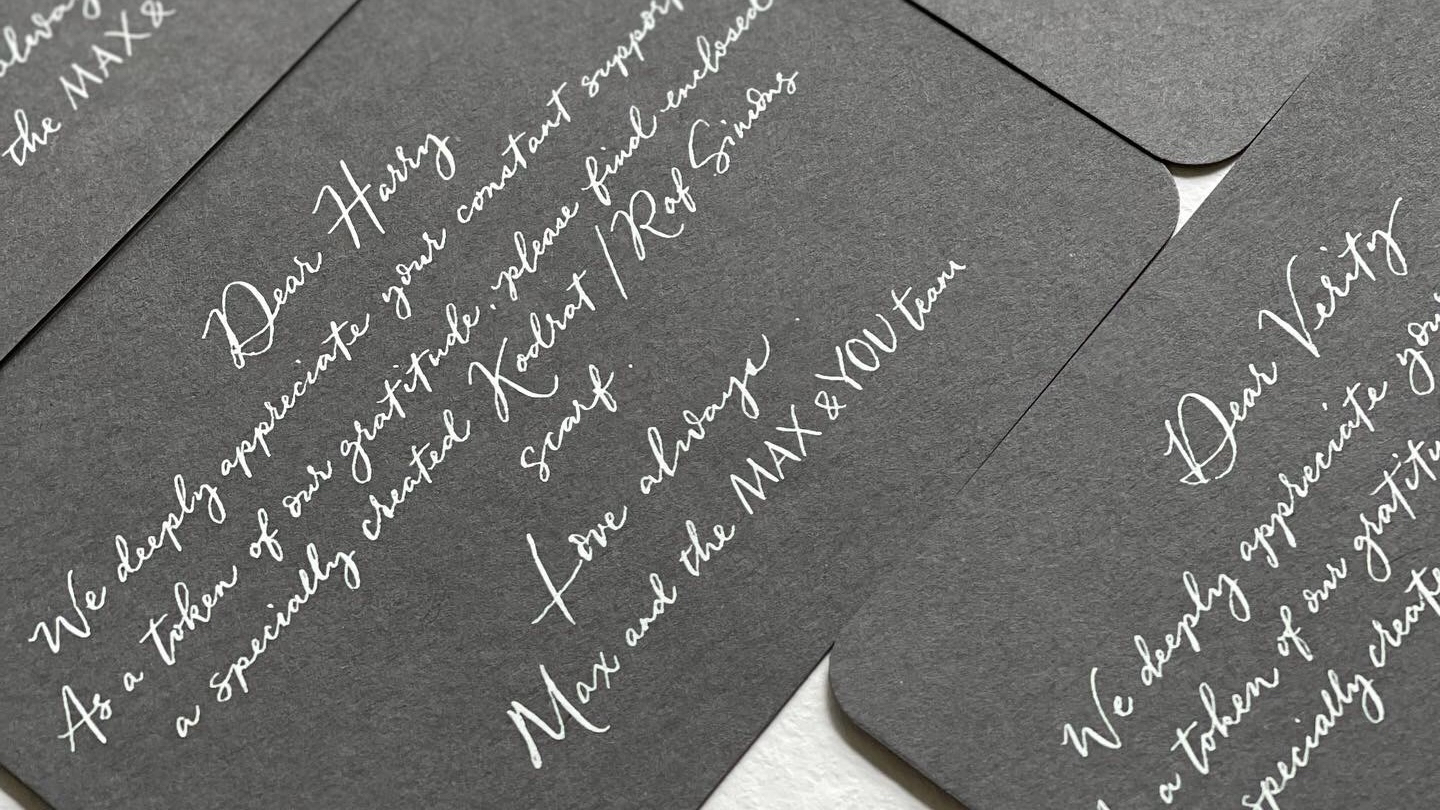 always
the MAX &
Dear Harry
We deeply appreciate your constant support
As a token of our gratitude. please find enclosed
a specially created Kodrat / Raf Simons
scarf.
Love always
Max and the MAX & YOU team
Dear Verity
We deeply appreciate your
a token of our gratitu
specially create